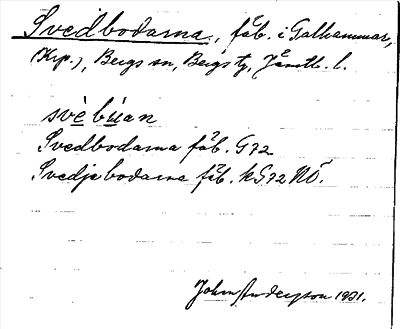 Svedbodarna, fäb. i Galhammar,
(Krp.), Bergs sn, Bergs tg, Jämtl. l.
svè bu̇an
Svedbodarna fäb. G72
Svedjebodarna fäb. kG72 NÖ.
John Anderson 1921.